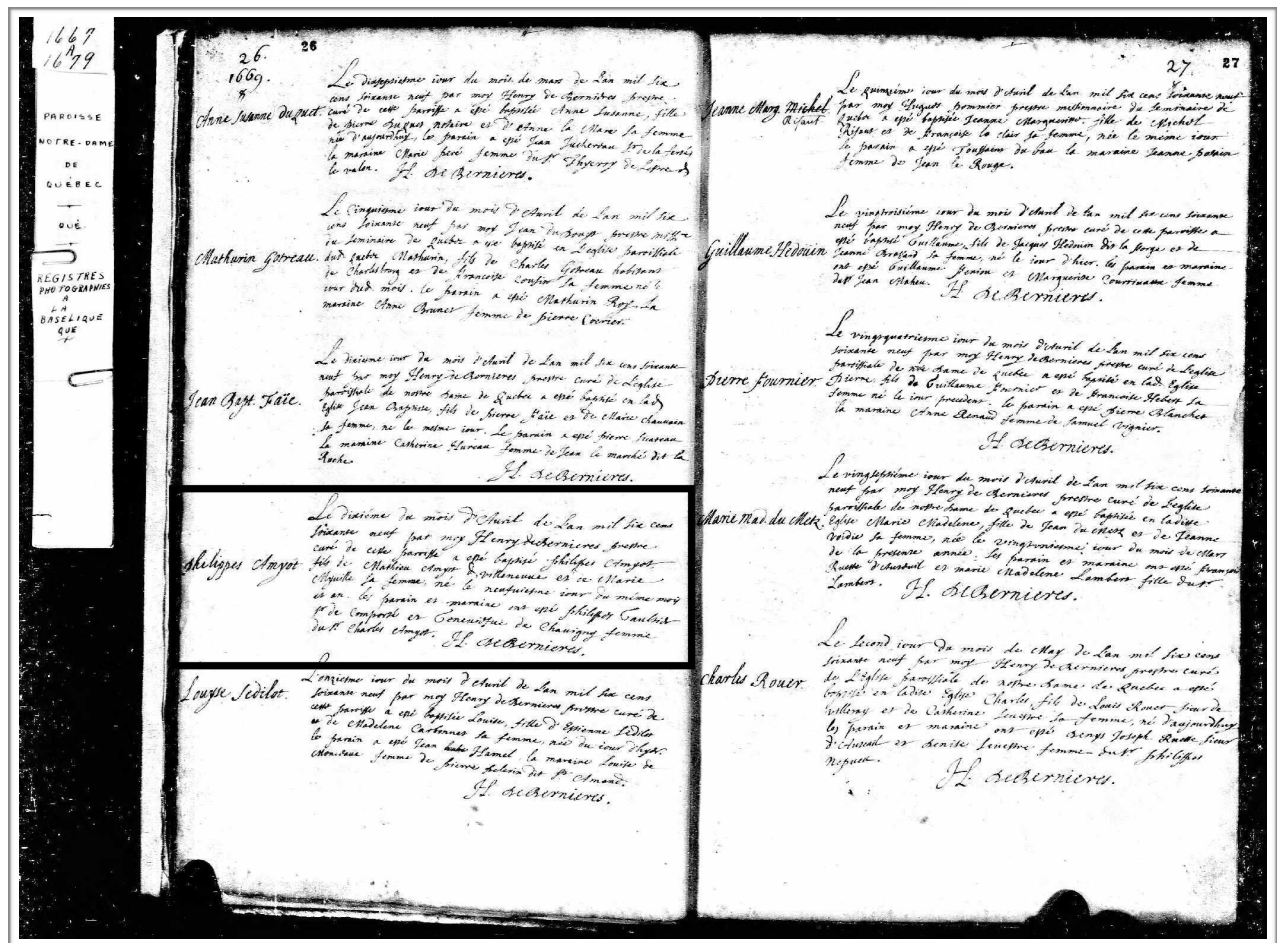 1667
A
1679
PAROISSE
NOTRE-DAME
DE
QUÉBEC
QUÉ.
REGISTRES
PHOTOGRAPHIES
A
LA
BASELIQUE
QUE
26. 26
1669.
Anne Susanne Duquet.
Le dixseptiesme iour du mois de mars de Lan mil six
cens soixante neuf par moy Henry de Bernieres prestre
curé de cette parroisse a esté baptisée Anne Susanne, fille
de pierre Duquet notaire et d'Anne la Mare sa femme
née d'aujourdhuy, le parain a esté Jean Juchereau Sr de la ferté
la maraine Marie peré femme du Sr Thyerry de Lestre
le valon. H. de Bernieres.
Mathurin Gotreau.
Le Cinquiesme iour du mois d'Avril de Lan mil six
cens soixante neuf par moy Jean prestre
du Seminaire de Quebec a esté baptisé en L'eglise parroissiale
dud. Quebec Mathurin, fils de Charles Gotreau habitant
de Charlesbourg et de Francoise Cousin sa femme né le
iour dud. mois. le parain a esté Mathurin Roy. La
maraine Anne Brunet femme de pierre Coirier.
Jean Bapt. Faïe.
Le dixiesme iour du mois d'Avril de Lan mil six cens soixante
neuf par moy Henry de Bernieres prestre curé de L'eglise
parroissiale de nostre Dame de Quebec a esté baptisé en lad.
Eglise Jean Baptiste, fils de pierre Faïe et de Marie chauvain
sa femme, né le mesme iour. Le parain a esté pierre
la maraine Catherine Hureau femme de Jean le marché dit la
Roche. H. de Bernieres.
philippes Amyot
Le dixiéme du mois d'Avril de Lan mil six cens
soixante neuf par moy Henry de Bernieres prestre
curé de cette parroisse a esté baptisé philippes Amyot
fils de Mathieu Amyot Sr de villeneuve et de Marie
Miville sa femme, né le neufuiesme iour du méme mois
et an. les parain et maraine ont esté philippes Gaultier
Sr de Comporté et Genevieſue de Chavigny femme
du Sr Charles Amyot. H. de Bernieres.
Louyse Sedilot.
L'onziesme iour du mois d'Avril de Lan mil six cens
soixante neuf par moy Henry de Bernieres prestre curé de
cette parroisse a esté baptisée Louise, fille d'Estienne Sedilot
et de Madelene Carbonnet sa femme, née du iour d'hyer.
le parain a esté Jean Hamel, la maraine Louise de
femme de pierre pelerin dit St Amand.
H. de Bernieres.
27. 27
Jeanne Marg. Michel
Rifaut
Le quinziéme iour du mois d'Avril de Lan mil six cens soixante neuf
par moy Hugues pommier prestre missionnaire du Seminaire de
Quebec a esté baptisée Jeanne Marguerite, fille de Michel
Rifaut et de Françoise la clair sa femme, née le méme iour
le parain a esté Toussaint du bau la maraine Jeanne
femme de Jean le Rouge.
Guillaume Hedoüin
Le vingtroisiéme iour du mois d'Avril de Lan mil six cens soixante
neuf par moy Henry de Bernieres prestre curé de cette parroisse a
esté baptisé Guillaume, fils de Jacques Hedouin dit la forge et de
Jeanne Brassard sa femme, né le iour d'hier. les parain et maraine
ont esté Guillaume et Marguerite femme
du Sr Jean Maheu. H. de Bernieres.
Pierre fournier.
Le vingtquatriesme iour du mois d'Avril de Lan mil six cens
soixante neuf par moy Henry de Bernieres prestre curé de L'eglise
parroissiale de nre Dame de Quebec a esté baptisé en lad. Eglise
Pierre fils de Guillaume fournier et de Francoise Hebert sa
femme né le iour precedent. le parain a esté pierre Blanchet
la maraine Anne Renaud femme de Samuel vignier.
H. de Bernieres.
Marie Mad. du Metz.
Le vingtseptiéme iour du mois d'Avril de Lan mil six cens soixante
neuf par moy Henry de Bernieres prestre curé de L'eglise
parroissiale de nostre Dame de Quebec a esté baptisée en ladite
Eglise Marie Madelene, fille de Jean du Metz et de Jeanne
Voidie sa femme, née le iour du mois de Mars
de la presente année. les parain et maraine ont esté françois
Ruette d'Auteuil et marie Madelene Lambert fille du Sr
Lambert. H. de Bernieres.
Charles Rouer.
Le Second iour du mois de May de Lan mil six cens
soixante neuf par moy Henry de Bernieres, prestre curé
de L'Eglise parroissiale de nostre Dame de Quebec a esté
baptisé en ladite Eglise Charles, fils de Louis Rouer sieur de
villeray et de Catherine Sevestre sa femme, né d'aujourdhuy
les parain et maraine ont esté Denys Joseph Ruette sieur
d'Auteuil et Denise Sevestre femme du Sr philippes
Nepueu. H. de Bernieres.